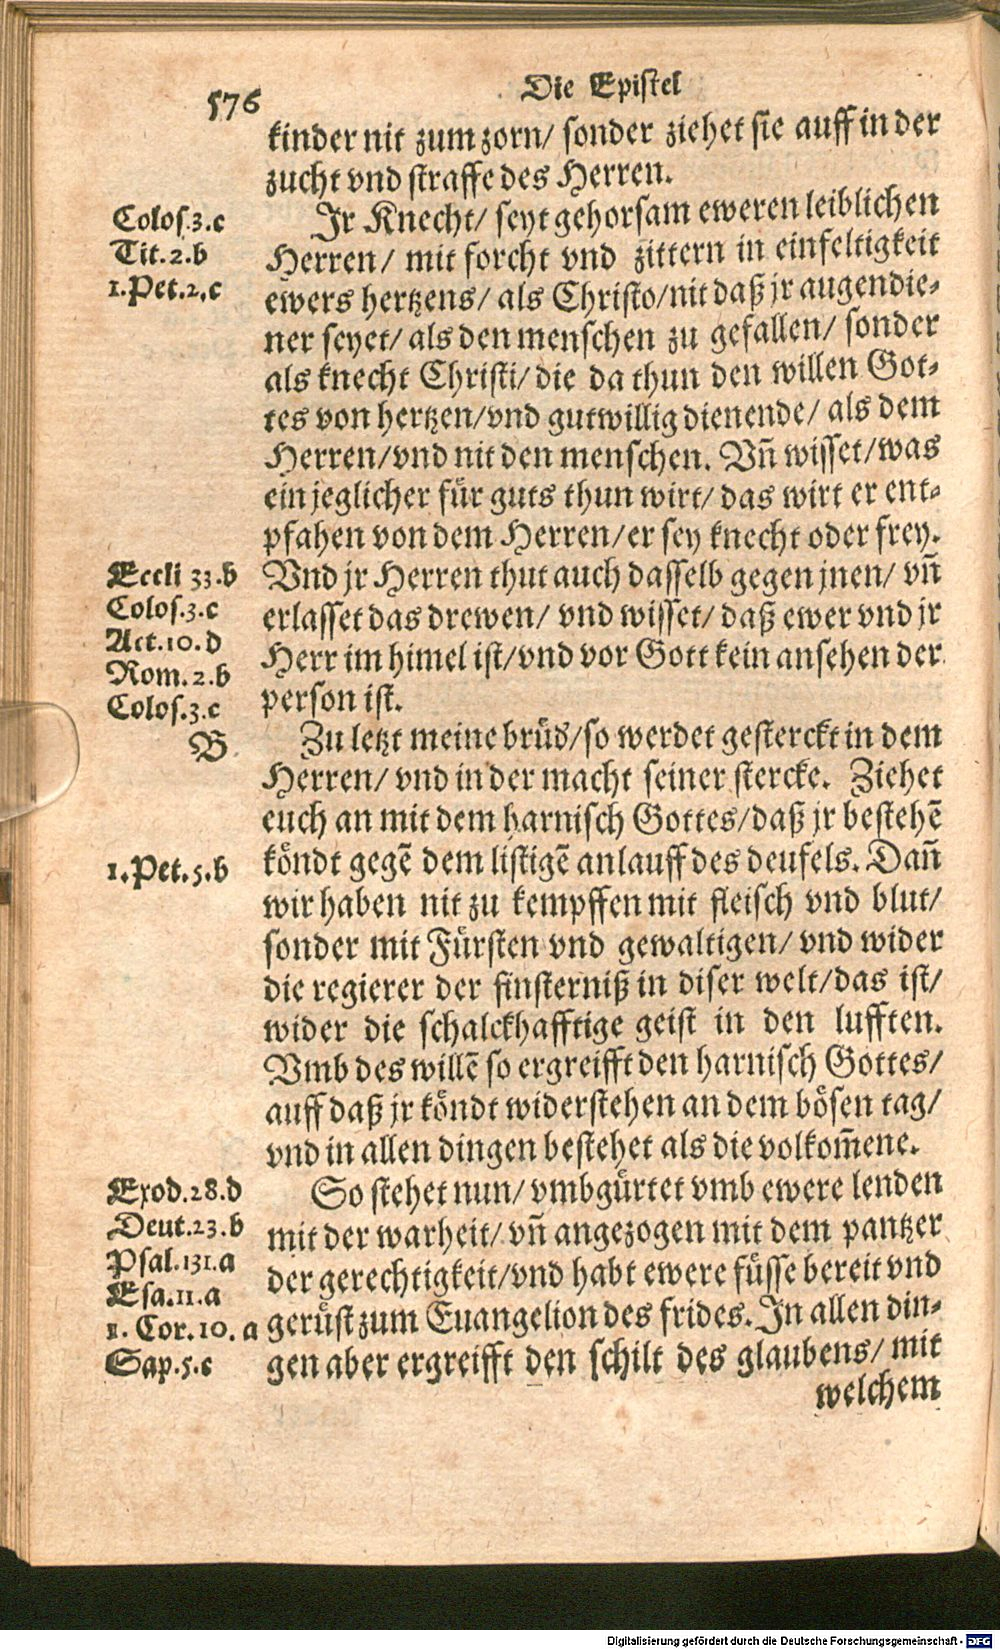 576
Die Epistel
kinder nit zum zorn/ sonder ziehet sie auff in der
zucht vnd straffe des Herren.
Colos.3.c
Ir Knecht/ seyt gehorsam eweren leiblichen
Tit.2.b
Herren/ mit forcht vnd zittern in einfeltigkeit
1.Pet.2.c
ewers hertzens/ als Christo/nit daß jr augendie-
ner seyet/ als den menschen zu gefallen/ sonder
als knecht Christi/ die da thun den willen Got-
tes von hertzen/vnd gutwillig dienende/ als dem
Herren/vnd nit den menschen. Vñ wisset/was
ein jeglicher für guts thun wirt/ das wirt er ent-
pfahen von dem Herren/er sey knecht oder frey.
Eccli 33.b
Vnd jr Herren thut auch dasselb gegen jnen/ vñ
Colos.3.c
erlasset das drewen/ vnd wisset/ daß ewer vnd jr
Act.10.d
Herr im himel ist/vnd vor Gott kein ansehen der
Rom.2.b
person ist.
Colos.3.c
B
Zu letzt meine brüd/so werdet gesterckt in dem
Herren/ vnd in der macht seiner stercke. Ziehet
euch an mit dem harnisch Gottes/daß jr bestehē
1.Pet.5.b
köndt gegē dem listigē anlauff des deufels. Dañ
wir haben nit zu kempffen mit fleisch vnd blut/
sonder mit Fürsten vnd gewaltigen/ vnd wider
die regierer der finsterniß in diser welt/das ist/
wider die schalckhafftige geist in den lufften.
Vmb des willē so ergreifft den harnisch Gottes/
auff daß jr köndt widerstehen an dem bösen tag/
vnd in allen dingen bestehet als die volkom̃ene.
Exod.28.d
So stehet nun/ vmbgürtet vmb ewere lenden
Deut.23.b
mit der warheit/ vñ angezogen mit dem pantzer
Psal.131.a
der gerechtigkeit/vnd habt ewere füsse bereit vnd
Esa.11.a
gerüst zum Euangelion des frides. In allen din-
1. Cor.10.a
gen aber ergreifft den schilt des glaubens/ mit
Sap.5.c
welchem
Digitalisierung gefördert durch die Deutsche Forschungsgemeinschaft - DFG